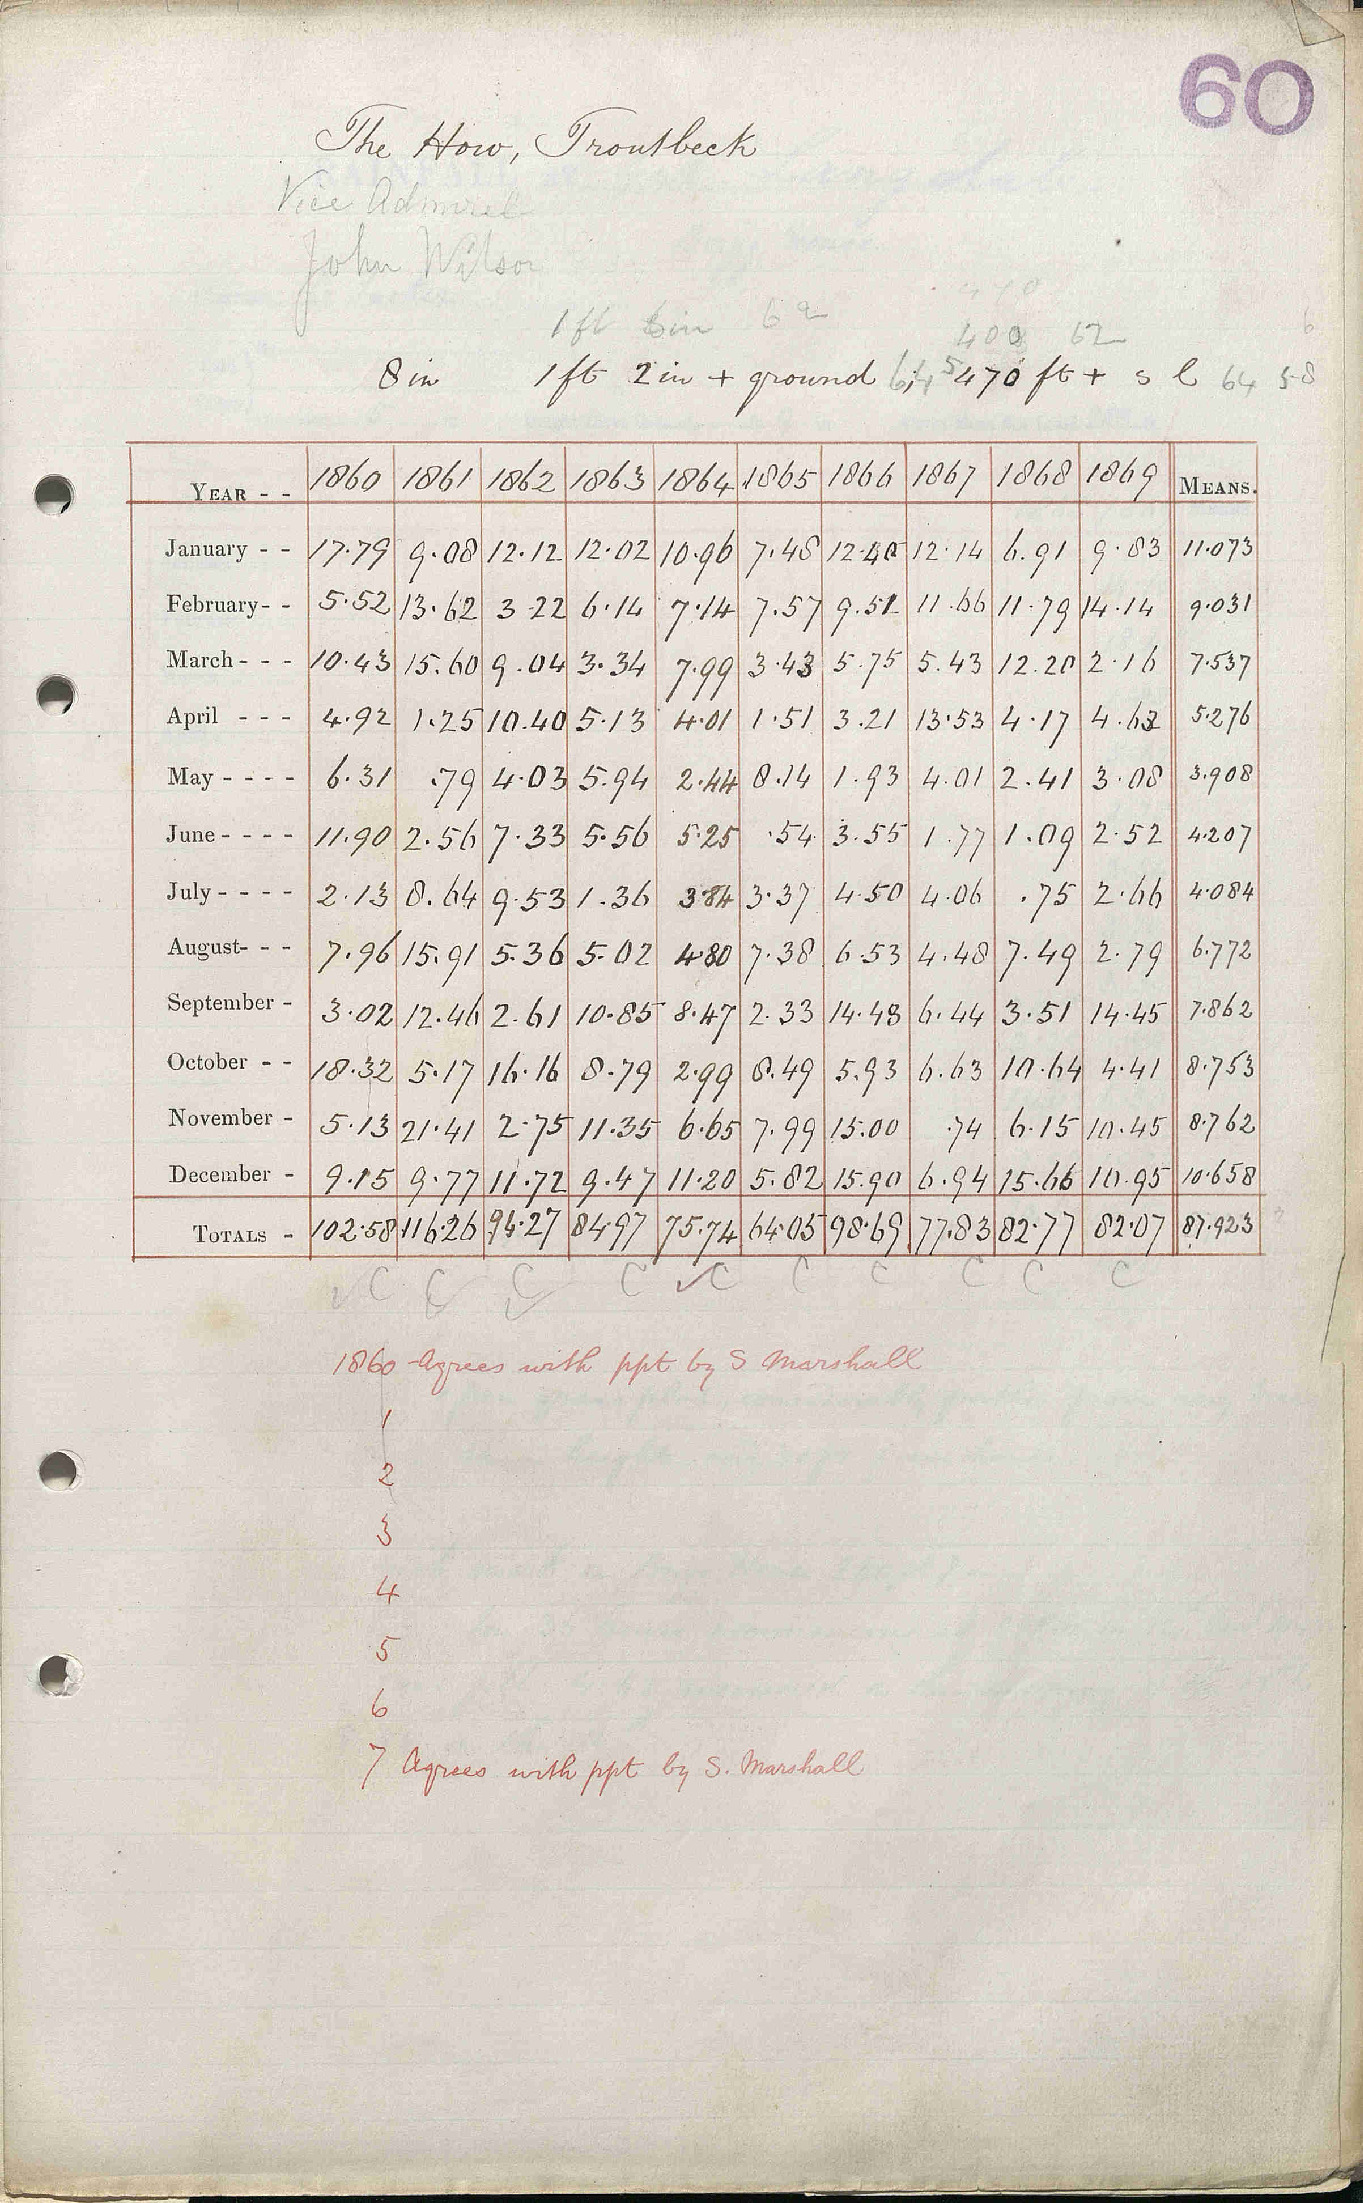 60
The How, Troutbeck
Vice Admiral
John Wilson
1 ft 6 in 62
400 62
8 in 1 ft 2 in + ground 6,4 5 470 ft + s l 64 58
YEAR - - 1860 1861 1862 1863 1864 1865 1866 1867 1868 1869 MEANS.
January - - 17.79 9.08 12.12 12.02 10.96 7.48 12.40 12.14 6.91 9.83 11.073
February - - 5.52 13.62 3.22 6.14 7.14 7.57 9.51 11.66 11.79 14.14 9.031
March - - - 10.43 15.60 9.04 3.34 7.99 3.43 5.75 5.43 12.20 2.16 7.537
April - - - 4.92 1.25 10.40 5.13 4.01 1.51 3.21 13.53 4.17 4.63 5.276
May - - - - 6.31 .79 4.03 5.94 2.44 8.14 1.93 4.01 2.41 3.08 3.908
June - - - - 11.90 2.56 7.33 5.56 5.25 .54 3.55 1.77 1.09 2.52 4.207
July - - - - 2.13 8.64 9.53 1.36 3.84 3.37 4.50 4.06 .75 2.66 4.084
August - - - 7.96 15.91 5.36 5.02 4.80 7.38 6.53 4.48 7.49 2.79 6.772
September - 3.02 12.46 2.61 10.85 8.47 2.33 14.48 6.44 3.51 14.45 7.862
October - - 18.32 5.17 16.16 8.79 2.99 8.49 5.93 6.63 10.64 4.41 8.753
November - 5.13 21.41 2.75 11.35 6.65 7.99 15.00 .74 6.15 10.45 8.762
December - 9.15 9.77 11.72 9.47 11.20 5.82 15.90 6.94 15.66 10.95 10.658
TOTALS - 102.58 116.26 94.27 84.97 75.74 64.05 98.69 77.83 82.77 82.07 87.923
C C C C C C C C C C
1860 Agrees with ppt by S Marshall
1
2
3
4
5
6
7 Agrees with ppt by S. Marshall